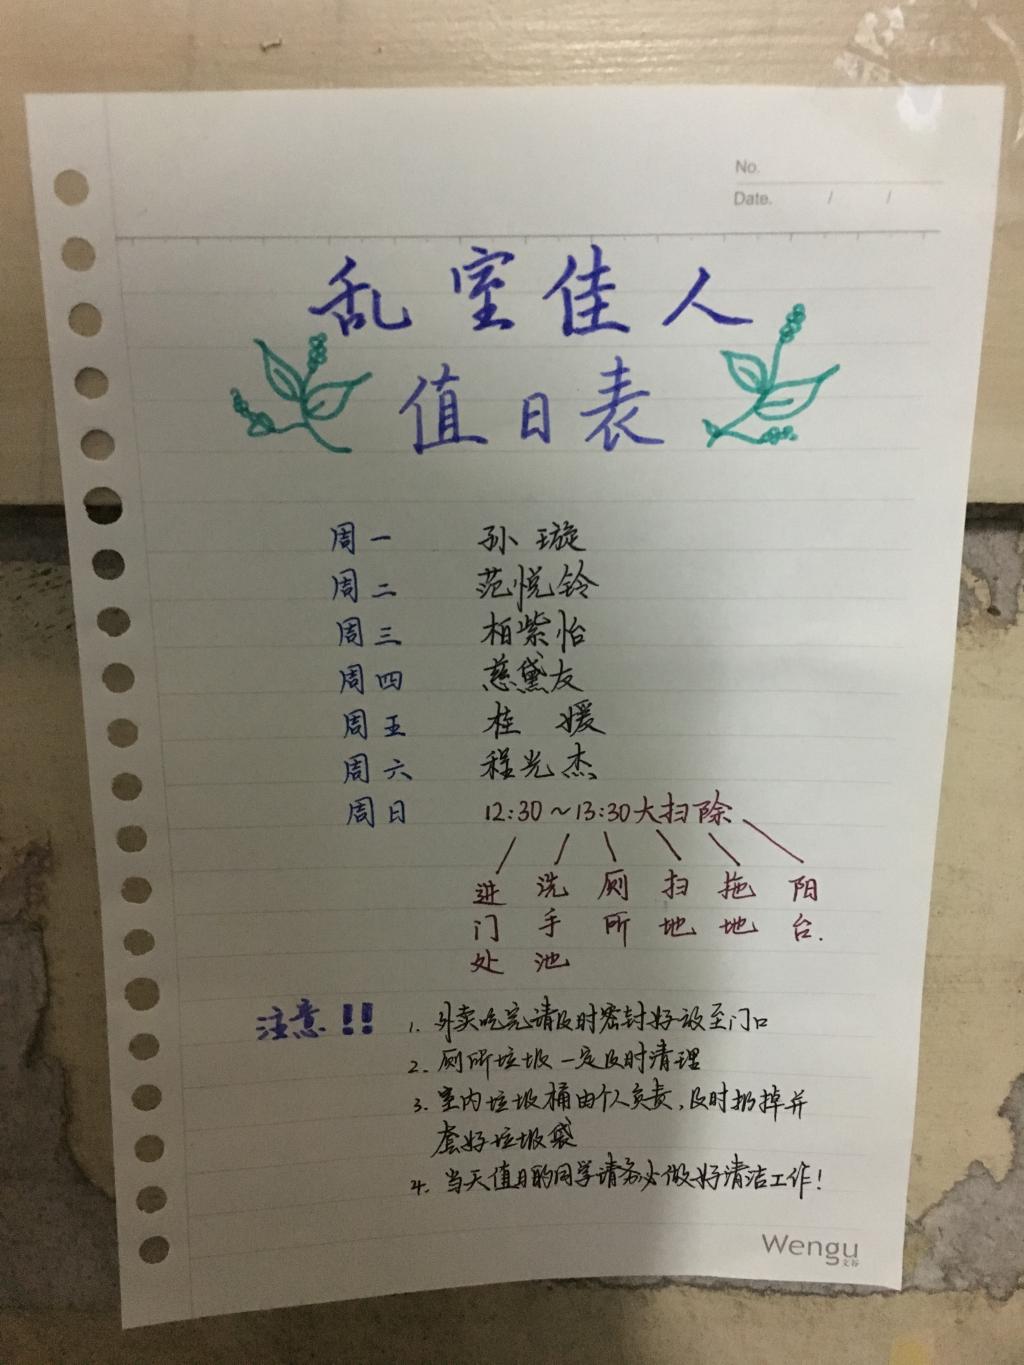 No.
Date. / /
乱室佳人
值日表
周一 孙璇
周二 范悦铃
周三 柏紫怡
周四 慈黛友
周五 桂媛
周六 程光杰
周日 12:30~13:30大扫除
进门处 洗手池 厕所 扫地 拖地 阳台.
注意!! 1. 外卖吃完请及时密封好放至门口
2. 厕所垃圾一定及时清理
3. 室内垃圾桶由个人负责,及时扔掉并
套好垃圾袋
4. 当天值日的同学请务必做好清洁工作!
Wengu
文谷